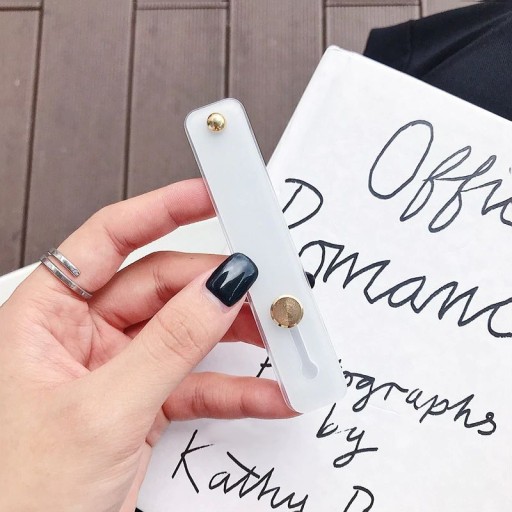 Offic
Romanc
tographs
by
Kathy R